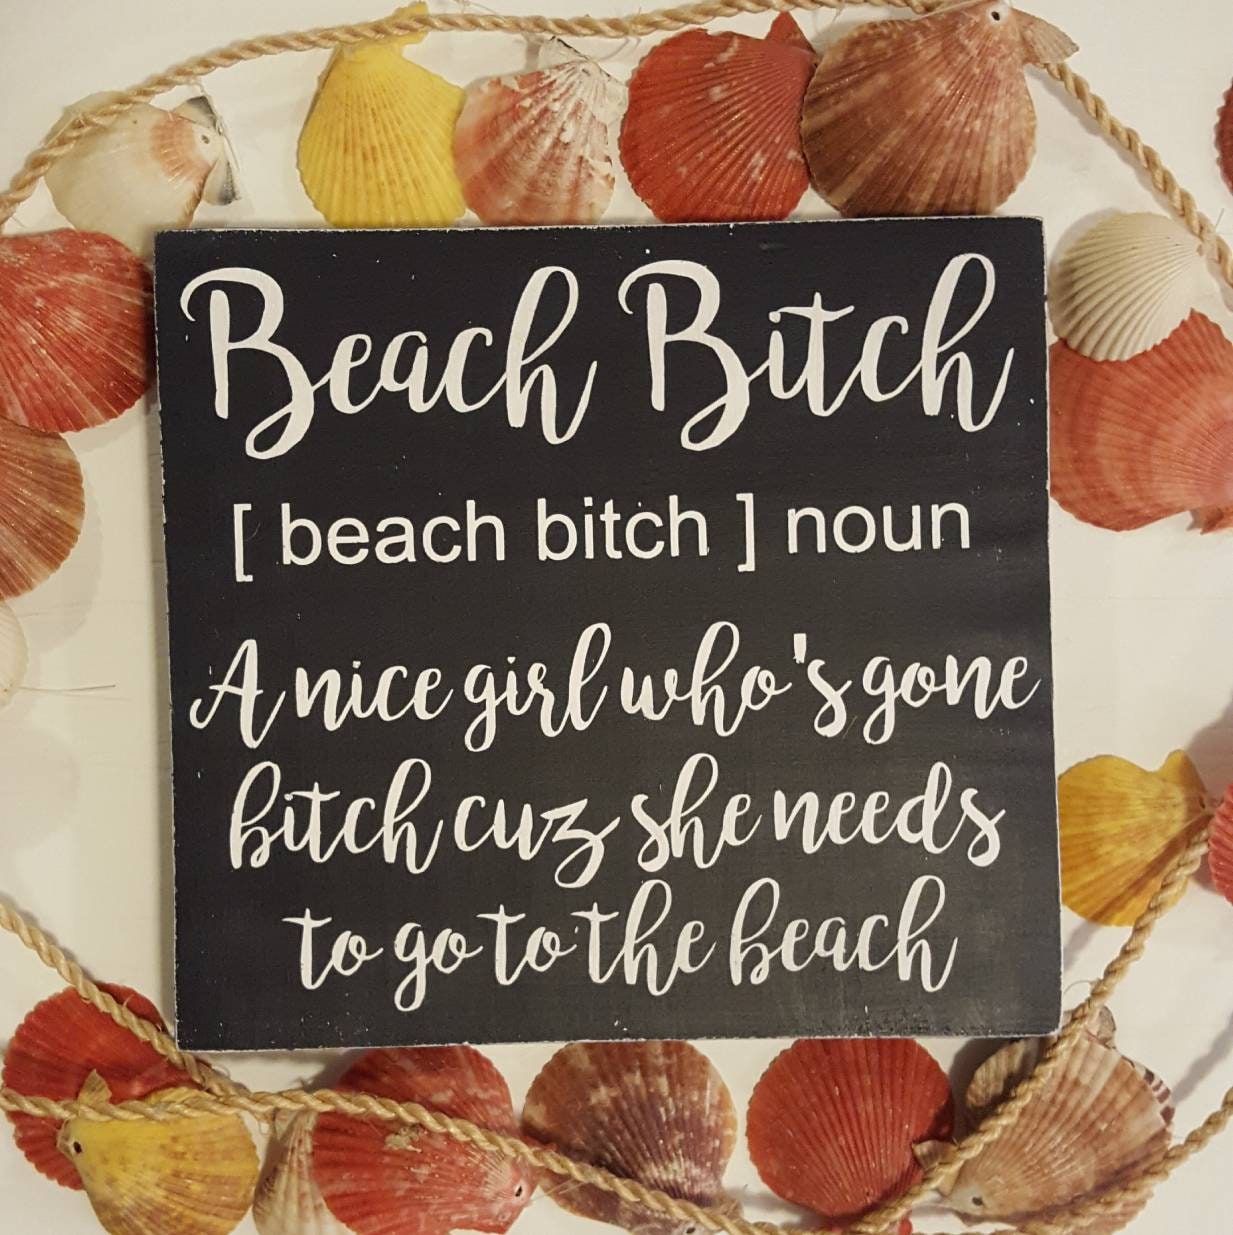 Beach Bitch
[ beach bitch ] noun
A nice girl who's gone
bitch cuz she needs
to go to the beach